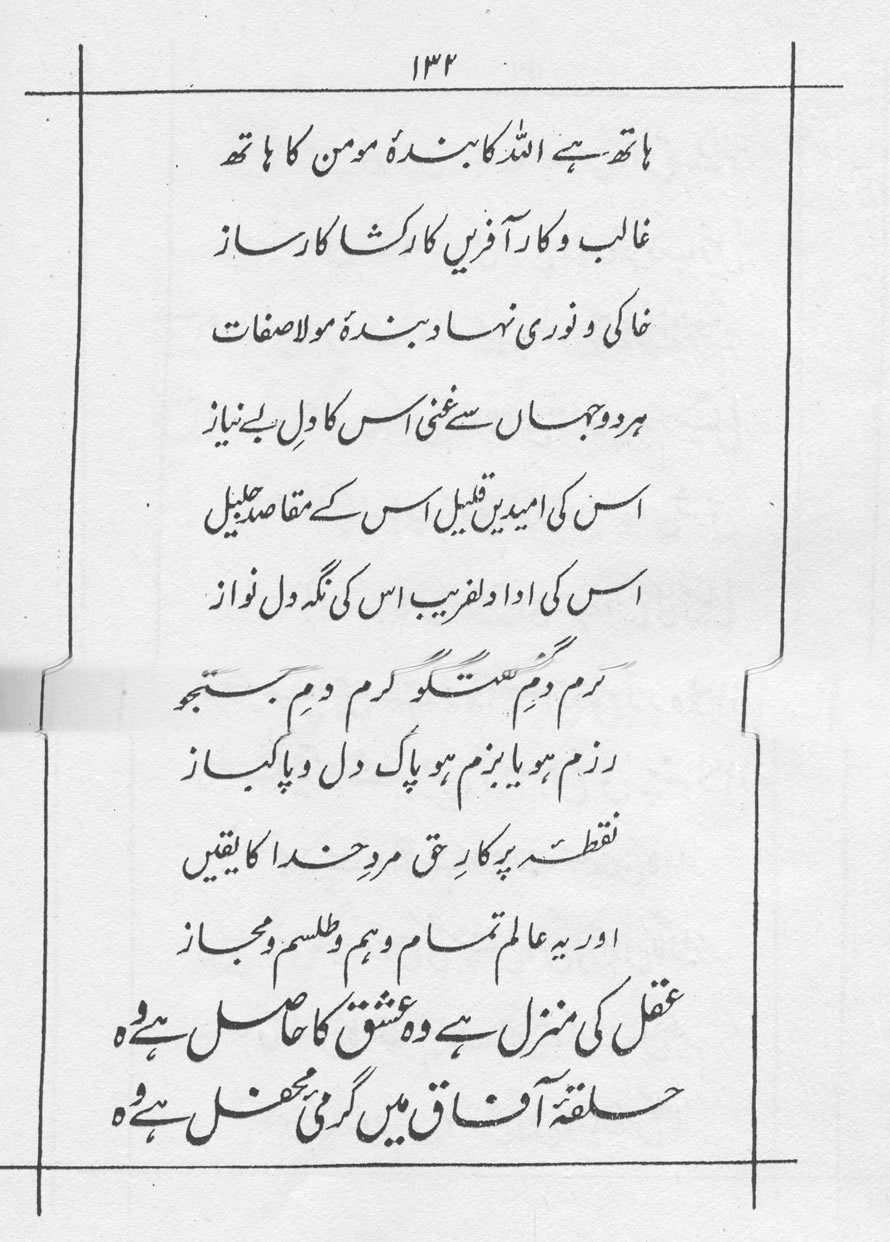 ۱۳۲
ہاتھ ہے اللہ کا بندۂ مومن کا ہاتھ
غالب و کار آفریں کارکشا کارساز
خاکی و نوری نہاد بندۂ مولا صفات
ہر دو جہاں سے غنی اس کا دلِ بے نیاز
اس کی امیدیں قلیل اس کے مقاصد جلیل
اس کی ادا دلفریب اس کی نگہ دل نواز
نرم دمِ گفتگو گرم دمِ جستجو
رزم ہو یا بزم ہو پاک دل و پاکباز
نقطۂ پرکارِ حق مردِ خدا کا یقیں
اور یہ عالم تمام وہم و طلسم و مجاز
عقل کی منزل ہے وہ عشق کا حاصل ہے وہ
حلقۂ آفاق میں گرمیٔ محفل ہے وہ